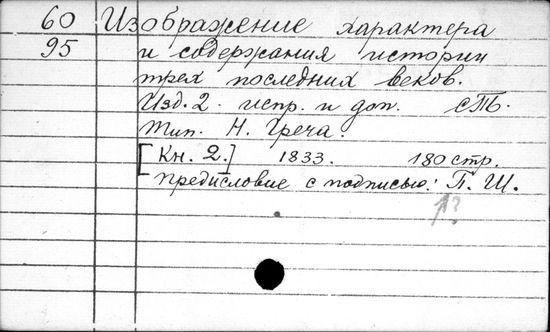 60 Изображение характера
95 и содержания истории
трех последних веков.
Изд. 2. испр. и доп. СПб.
Тип. Н. Греча.
[Кн. 2.] 1833. 180 стр.
предисловие с подписью: П. Ш.